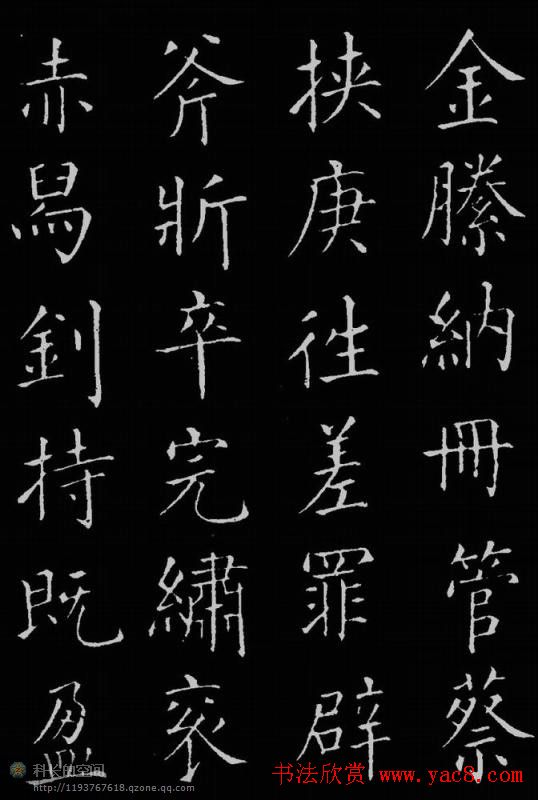 金縢納冊管蔡
挟庚徃差罪辟
斧斨卒完繡衮
赤舄釗持既盈
科长的空间
http://1193767618.qzone.qq.com
书法欣赏 www.yac8.com